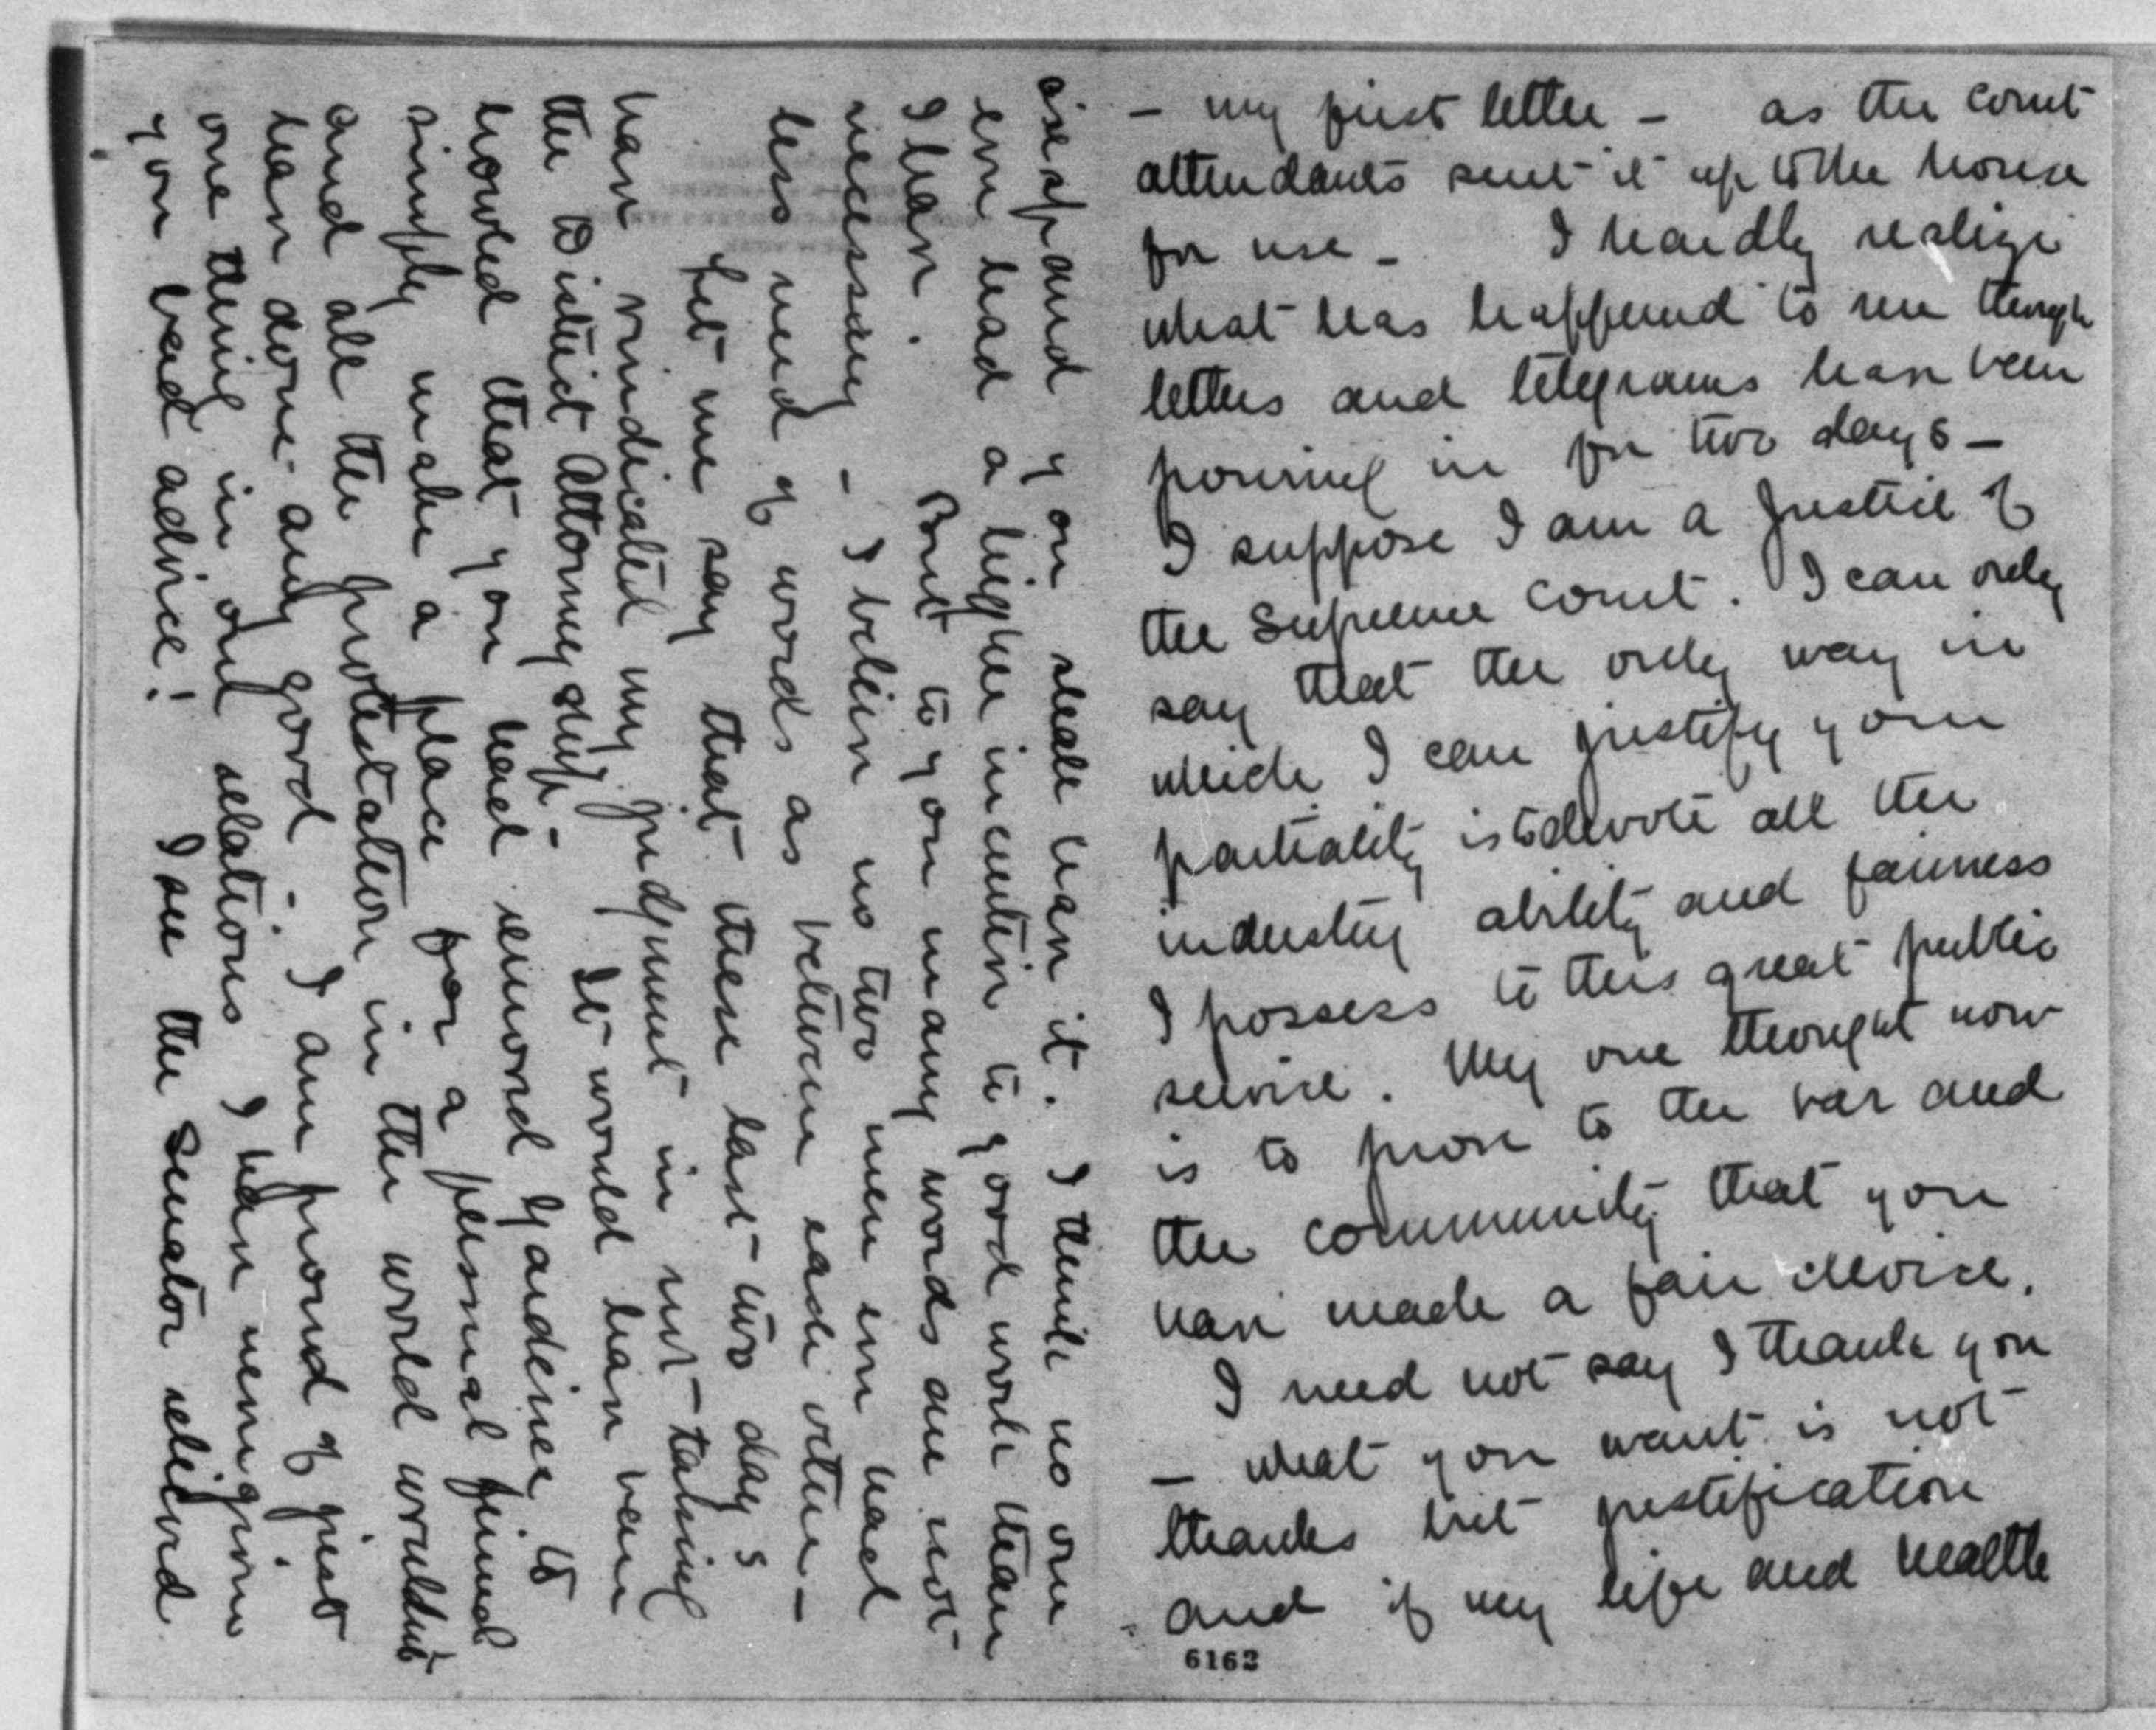 - my first letter - as the court
attendants sent it up to the house
for use - I hardly realize
what has happened to me though
letters and telegrams have been
pouring in for two days -
I suppose I am a Justice of
the Supreme Court. I can only
say that the only way in
which I can justify your
partiality is to devote all the
industry ability and fairness
I possess to this great public
service. My one thought now
is to prove to the bar and
the community that you
have made a fair choice.
I need not say I thank you
- what you want is not
thanks but justification
and if my life and health
6162
respond you shall have it. I think no one
ever had a higher incentive to good work than
I have. But to you many words are not
necessary - I believe no two men ever had
less need of words as between each other -
Let me say that these last two days
have vindicated my judgment in not taking
the District Attorneyship - It would have been
howled that you had removed Gardiner to
simply make a place for a personal friend
and all the protestation in the world wouldnt
have done any good - I am proud of just
one thing in our relations I have never given
you bad advice! I see the Senator relieved